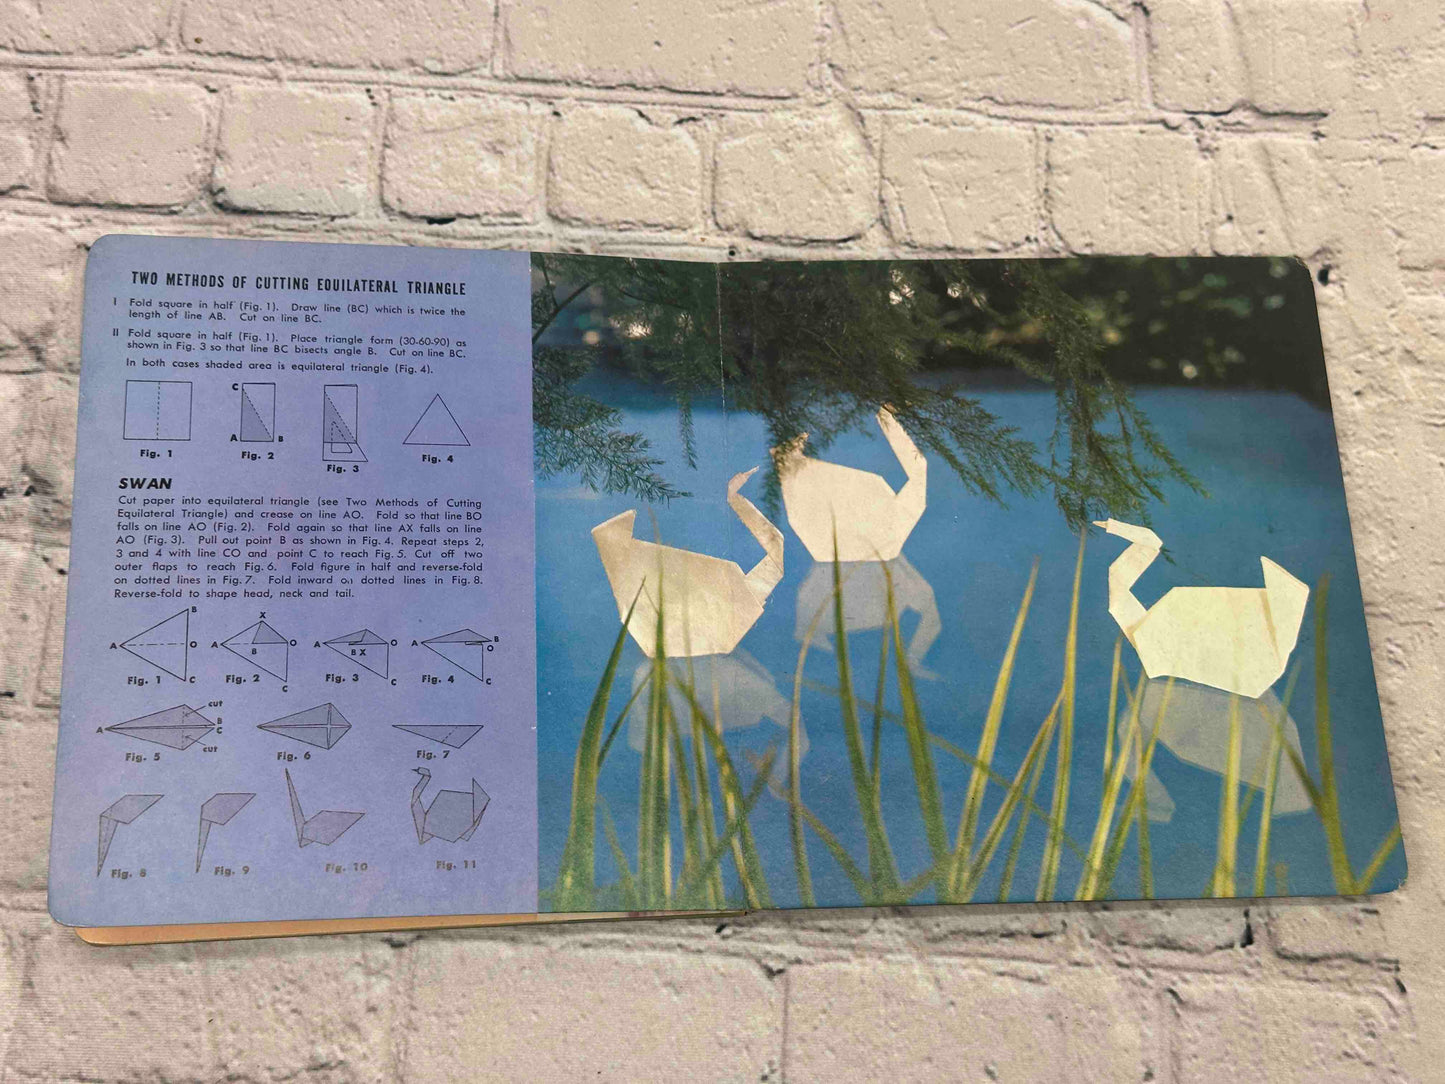 TWO METHODS OF CUTTING EQUILATERAL TRIANGLE
I Fold square in half (Fig. 1). Draw line (BC) which is twice the
length of line AB. Cut on line BC.
II Fold square in half (Fig. 1). Place triangle form (30-60-90) as
shown in Fig. 3 so that line BC bisects angle B. Cut on line BC.
In both cases shaded area is equilateral triangle (Fig. 4).
C
A B
Fig. 1 Fig. 2 Fig. 3 Fig. 4
SWAN
Cut paper into equilateral triangle (see Two Methods of Cutting
Equilateral Triangle) and crease on line AO. Fold so that line BO
falls on line AO (Fig. 2). Fold again so that line AX falls on line
AO (Fig. 3). Pull out point B as shown in Fig. 4. Repeat steps 2,
3 and 4 with line CO and point C to reach Fig. 5. Cut off two
outer flaps to reach Fig. 6. Fold figure in half and reverse-fold
on dotted lines in Fig. 7. Fold inward on dotted lines in Fig. 8.
Reverse-fold to shape head, neck and tail.
B X
A O A O A O A B
B B X O
C C C C
Fig. 1 Fig. 2 Fig. 3 Fig. 4
cut
A B
C
cut
Fig. 5 Fig. 6 Fig. 7
Fig. 8 Fig. 9 Fig. 10 Fig. 11